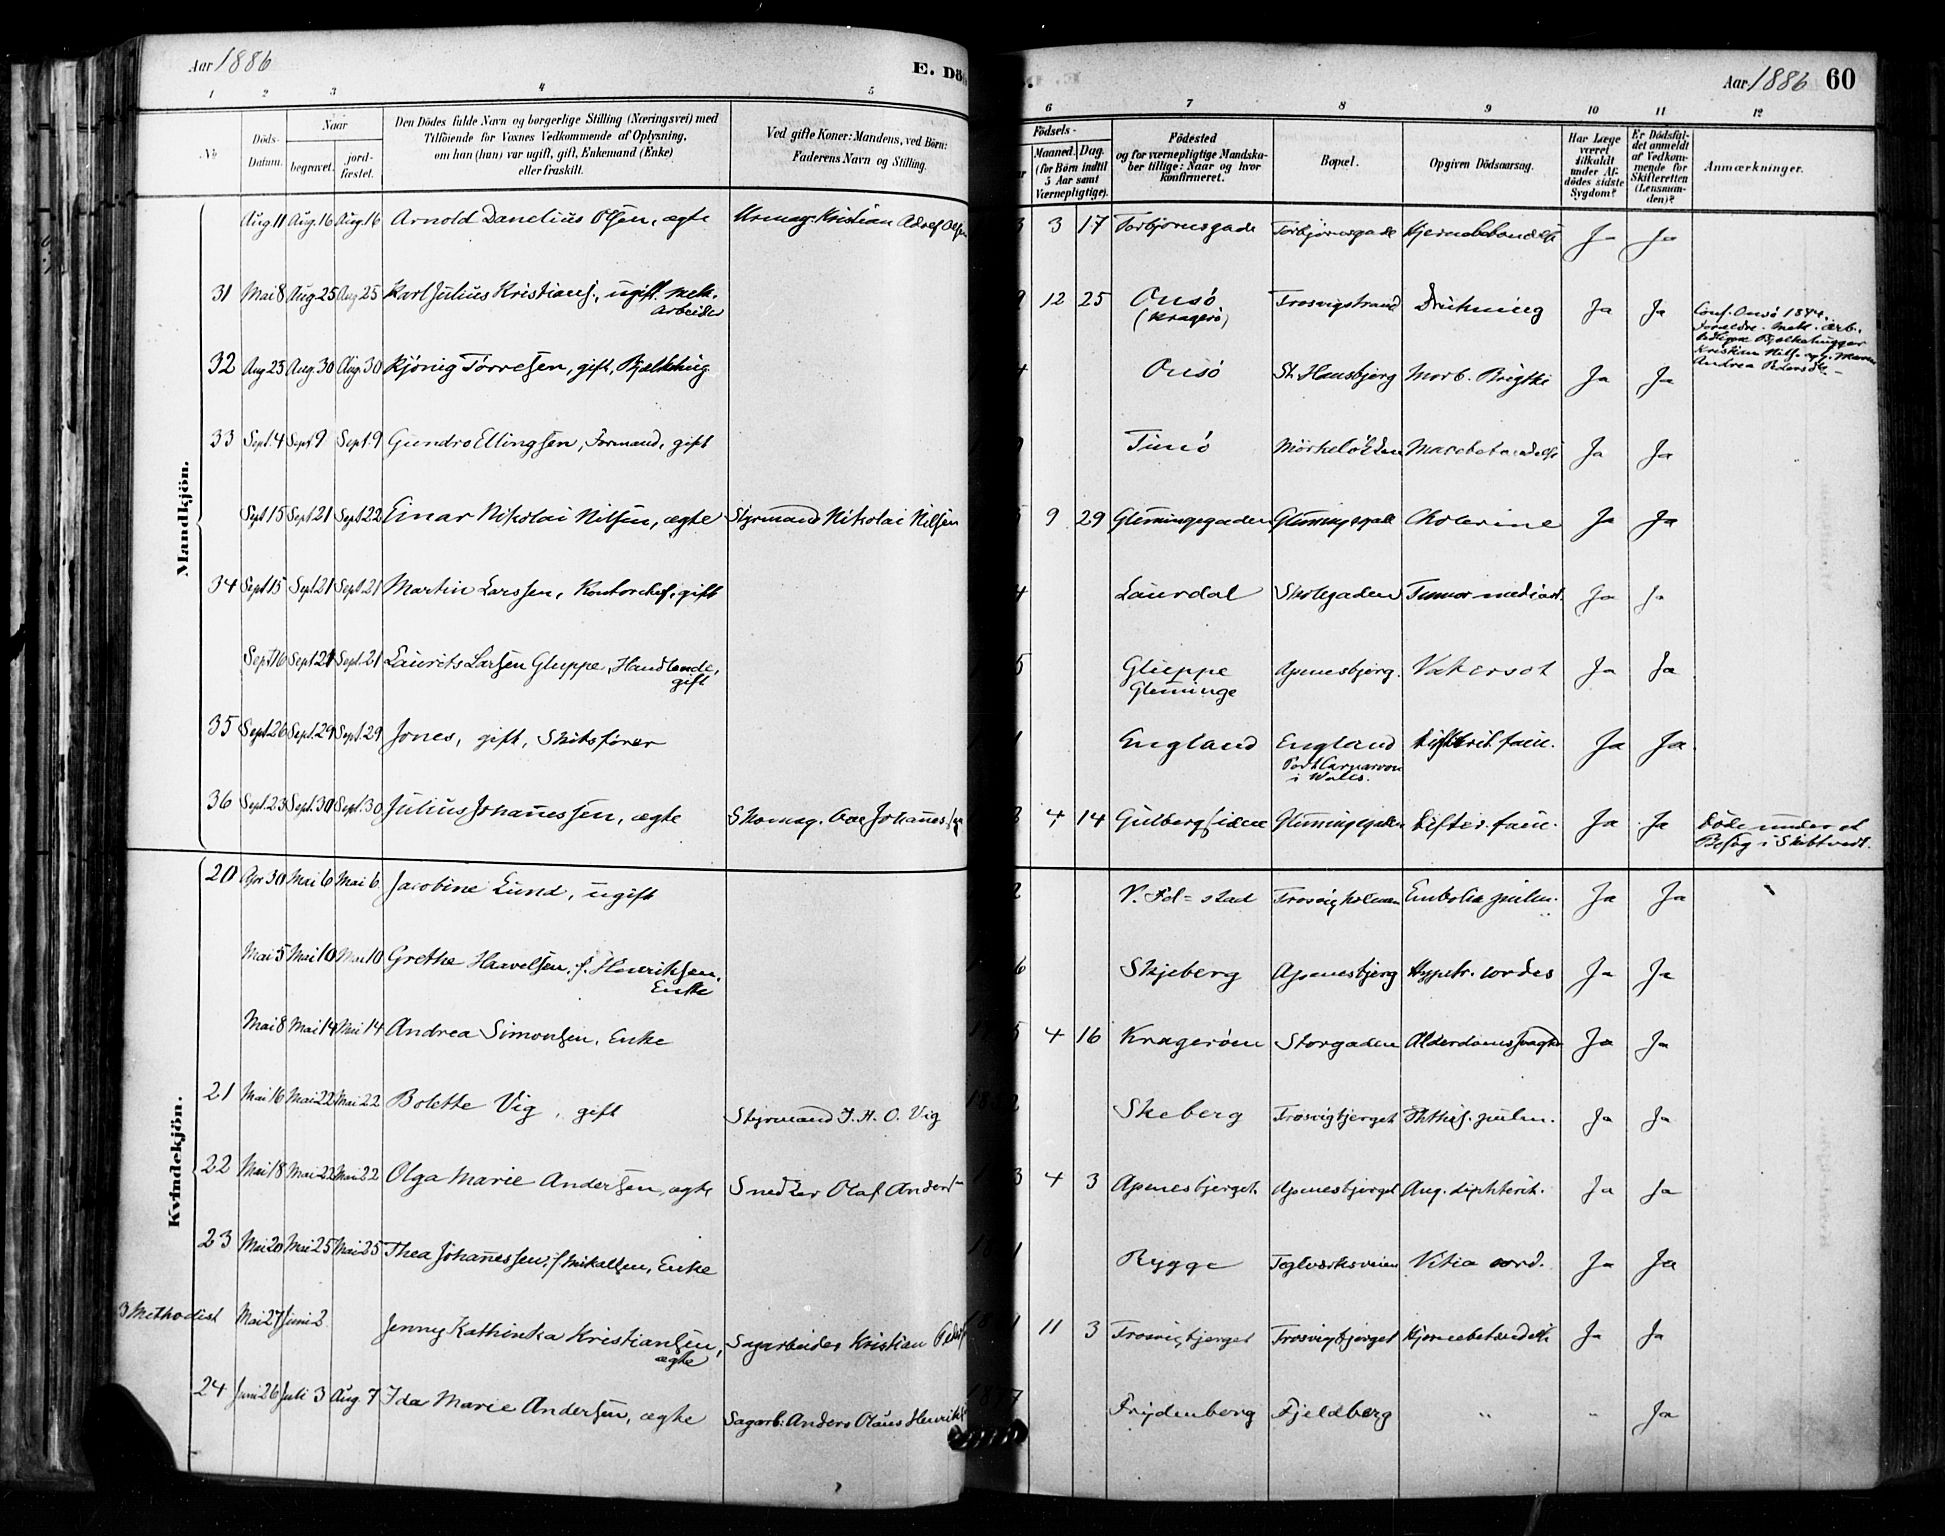 Aar 1886
E. Dö
Aar 1886 60
1 2 3 4 5 6 7 8 9 10 11 12
No
Döds-Datum.
Naar
begravet.
jord-fæstet.
Den Dödes fulde Navn og borgerlige Stilling (Næringsvei) med
Tilföiende for Voxnes Vedkommende af Oplysning,
om han (hun) var ugift, gift, Enkemand (Enke)
eller fraskilt.
Ved gifte Koner: Mandens, ved Börn:
Faderens Navn og Stilling.
Födsels-
Maaned. Dag.
(for Börn indtil
5 Aar samt
Værnepligtige).
Födested
og for værnepligtige Mandska-
ber tillige: Naar og hvor
konfirmeret.
Bopæl.
Opgiven Dödsaarsag.
Har Læge
været
tilkaldt
under Af-
dödes sidste
Sygdom?
Er Dödsfal-
det anmeldt
af Vedkom-
mende for
Skifteretten
(Lensman-
den)?
Anmærkninger.
Mandkjön.
Aug. 11 Aug. 16 Aug. 16 Arnold Danelius Olsen, ægte Urmag. Kristian Adolf Olsen 3 3 17 Torbjørnsgade Torbjørnsgade Hjernebetændelse Ja Ja
31 Mai 8 Aug 25 Aug 25 Karl Julius Kristians., ugift mek. 9 12 25 Onsö Trosvigstrand Drukning Ja Ja Conf. Onsö
Arbeider (Kragerö) Forældre
32 Aug 25 Aug. 30 Aug. 30 Kjönig Törresen, gift, Bjelkhug 4 Onsö St. Hansbjerg Morb. Brigtii Ja Ja
Kristian Nils. og h. Maren
Andrea Pedersdtr
33 Sept. 4 Sept 9 Sept. 9 Gundro Ellingsen, Formand, gift 9 Tunö Mörkelökken Ja Ja
Sept 15 Sept 21 Sept 22 Einar Nikolai Nilsen, ægte Styrmand Nikolai Nilsen 5 9 29 Glemmingegaden Glemminggade Cholerine Ja Ja
34 Sept 15 Sept 21 Sept. 21 Martin Larssen, Kontorchef, gift 4 Laurdal Skolegaden Tumor mediast. Ja Ja
Sept 16 Sept 21 Sept. 21 Laurits Larsen Gluppe, Handlende, 5 Gluppe Apenesbjerg. Vatersot Ja Ja
gift Glemminge
35 Sept. 26 Sept. 29 Sept. 29 Jones, gift, Skibsfører 1 England England Difterit. fauc. Ja Ja
Port Carnarvon
i Wales.
36 Sept. 23 Sept. 30 Sept. 30 Julius Johannessen, ægte Skomag. Johannessen 8 4 14 Gulbergsiden Glemmingegaden Difter. fauc. Ja Ja Döde under et
Besög i Skibtvedt.
Kvindekjön.
20 Apr 30 Mai 6 Mai 6. Jacobine Lund, ugift 2 V. Fd=stad Trosvigholmen Embolia pulm. Ja Ja
Mai 5 Mai 10 Mai 10 Grethe Haavelsen, f. Henriksen, 6 Skjeberg Apenesbjerg Hypetr. cordis Ja Ja
Enke
Mai 8 Mai 14 Mai 14 Andrea Simonsen, Enke 5 4 16 Kragerøen Storgaden Alderdomssvaghed Ja Ja
21 Mai 16 Mai 22 Mai 22 Bolette Vig, gift Styrmand J. H. O. Vig 18 2 Skeberg Trosvigbjerget Phthis. pulm. Ja Ja
22 Mai 18 Mai 22 Mai 22 Olga Marie Andersen, ægte Snedker Olaf Anders- 3 4 3 Apenesbjerget Apenesbjerget Ang. diphterit. Ja Ja
23 Mai 20 Mai 25 Mai 25 Thea Johannessen, f. Mikalsen, Enke 1 Rygge Teglverksveien Vitia cord. Ja Ja
3 Methodist Mai 27 Juni 2 Jenny Kathinka Kristiansen, Sagarbeider Kristian 18 1 11 3 Trosvigbjerget Trosvigbjerget Hjernebetændelse Ja Ja
ægte
24 Juni 26 Juli 3 Aug. 7 Ida Marie Andersen, ægte Sagarb. Anders Olaus Henriks 7 Frydenberg Fjeldberg " " Ja